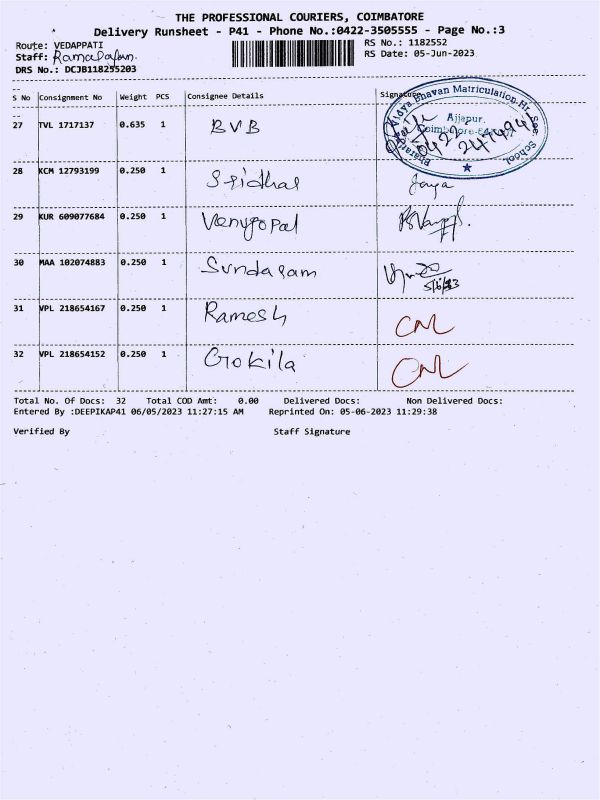 THE PROFESSIONAL COURIERS, COIMBATORE
Delivery Runsheet - P41 - Phone No.:0422-3505555 - Page No.:3
Route: VEDAPPATI
RS No.: 1182552
Staff:
RS Date: 05-Jun-2023
DRS No.: DCJB118255203
S No Consignment No Weight PCS Consignee Details Signature
27 TVL 1717137 0.635 1 BVB
Bharatiya Vidya Bhavan Matriculation Hr. Sec. School
Ajjanur,
Coimbatore-641
0422
28 KCM 12793199 0.250 1 Sridhar Jaya
29 KUR 609077684 0.250 1 Venugopal
30 MAA 102074883 0.250 1 Sundaram
5/6/23
31 VPL 218654167 0.250 1 Ramesh CNL
32 VPL 218654152 0.250 1 Gokila CNL
Total No. Of Docs: 32 Total COD Amt: 0.00 Delivered Docs: Non Delivered Docs:
Entered By :DEEPIKAP41 06/05/2023 11:27:15 AM Reprinted On: 05-06-2023 11:29:38
Verified By Staff Signature